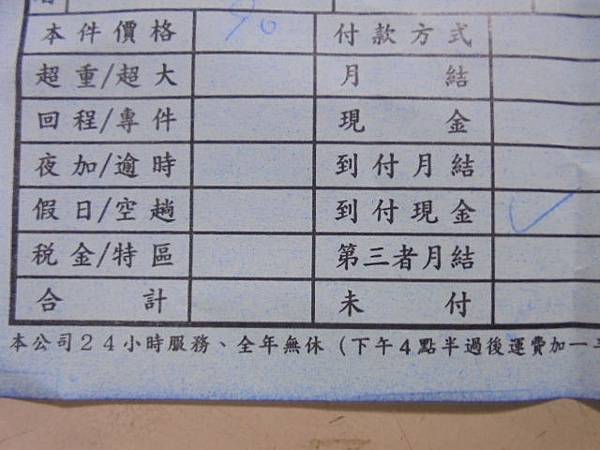 本件價格 90 付款方式
超重/超大 月結
回程/專件 現金
夜加/逾時 到付月結
假日/空趟 到付現金 ✓
税金/特區 第三者月結
合計 未付
本公司24小時服務、全年無休(下午4點半過後運費加一